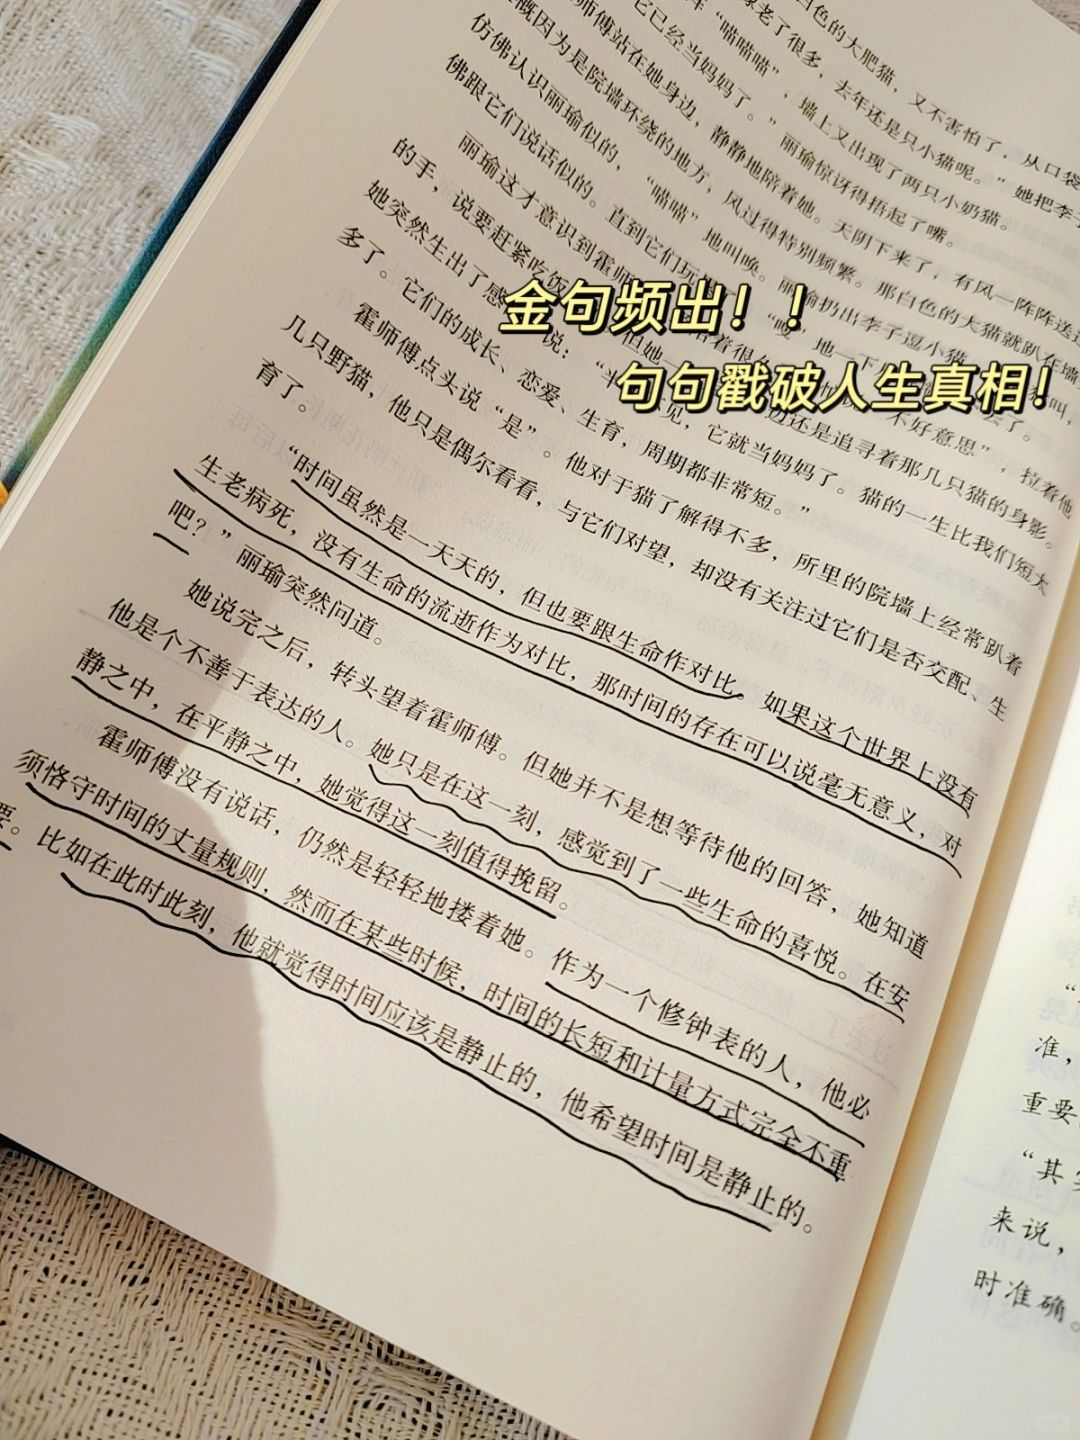 白色的大肥猫，又不害怕了，从口袋
像老了很多，去年还是只小猫呢。”她把李子
阵“喵喵喵”，墙上又出现了两只小奶猫。
它已经当妈妈了。”丽瑜惊讶得捂起了嘴。
师傅站在她身边，静静地陪着她。天阴下来了，有风一阵阵送过
概因为是院墙环绕的地方，风过得特别频繁。那白色的大猫就趴在墙
仿佛认识丽瑜似的，“喵喵”地叫唤。丽瑜扔出李子逗小猫 叫，
佛跟它们说话似的。直到它们玩 “嗖”地一下 去了。
丽瑜这才意识到霍师 站着很久 不好意思”，拉着他
的手，说要赶紧吃饭 但她 还是追寻着那几只猫的身影。
她突然生出了感 说：“半 见，它就当妈妈了。猫的一生比我们短太
多了。它们的成长、恋爱、生育，周期都非常短。”
霍师傅点头说“是”。他对于猫了解得不多，所里的院墙上经常趴着
几只野猫，他只是偶尔看看，与它们对望，却没有关注过它们是否交配、生
育了。
“时间虽然是一天天的，但也要跟生命作对比。如果这个世界上没有
生老病死，没有生命的流逝作为对比，那时间的存在可以说毫无意义，对
吧？”丽瑜突然问道。
她说完之后，转头望着霍师傅。但她并不是想等待他的回答，她知道
他是个不善于表达的人。她只是在这一刻，感觉到了一些生命的喜悦。在安
静之中，在平静之中，她觉得这一刻值得挽留。
霍师傅没有说话，仍然是轻轻地搂着她。作为一个修钟表的人，他必
须恪守时间的丈量规则，然而在某些时候，时间的长短和计量方式完全不重
要。比如在此时此刻，他就觉得时间应该是静止的，他希望时间是静止的。
金句频出！！
句句戳破人生真相！
准，
重要
“其实
来说，
时准确。